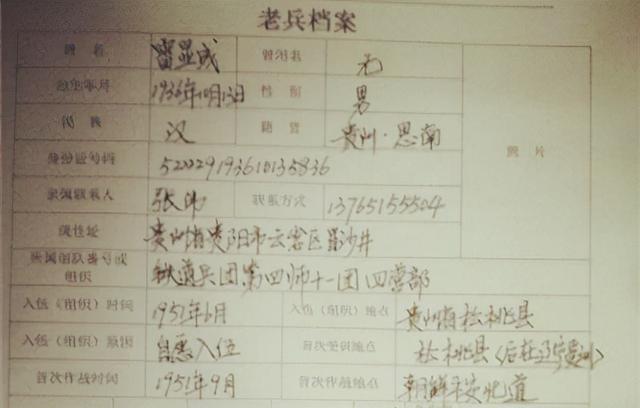 老兵档案
姓名 雷显成 曾用名 无
出生年月 1936年10月13日 性别 男
民族 汉 籍贯 贵州·思南
身份证号码 522229193610135836 照片
亲领联系人 张伟 联系方式 13765155504
现住址 贵州省贵阳市云岩区黑沙井
所属部队番号或组织 铁道兵团第四师十一团四营部
入伍（组织）时间 1951年6月 入伍（组织）地点 贵州省松桃县
入伍（组织）原因 自愿入伍 首次受训地点 松桃县（后在辽宁
首次作战时间 1951年9月 首次作战地点 朝鲜平安北道